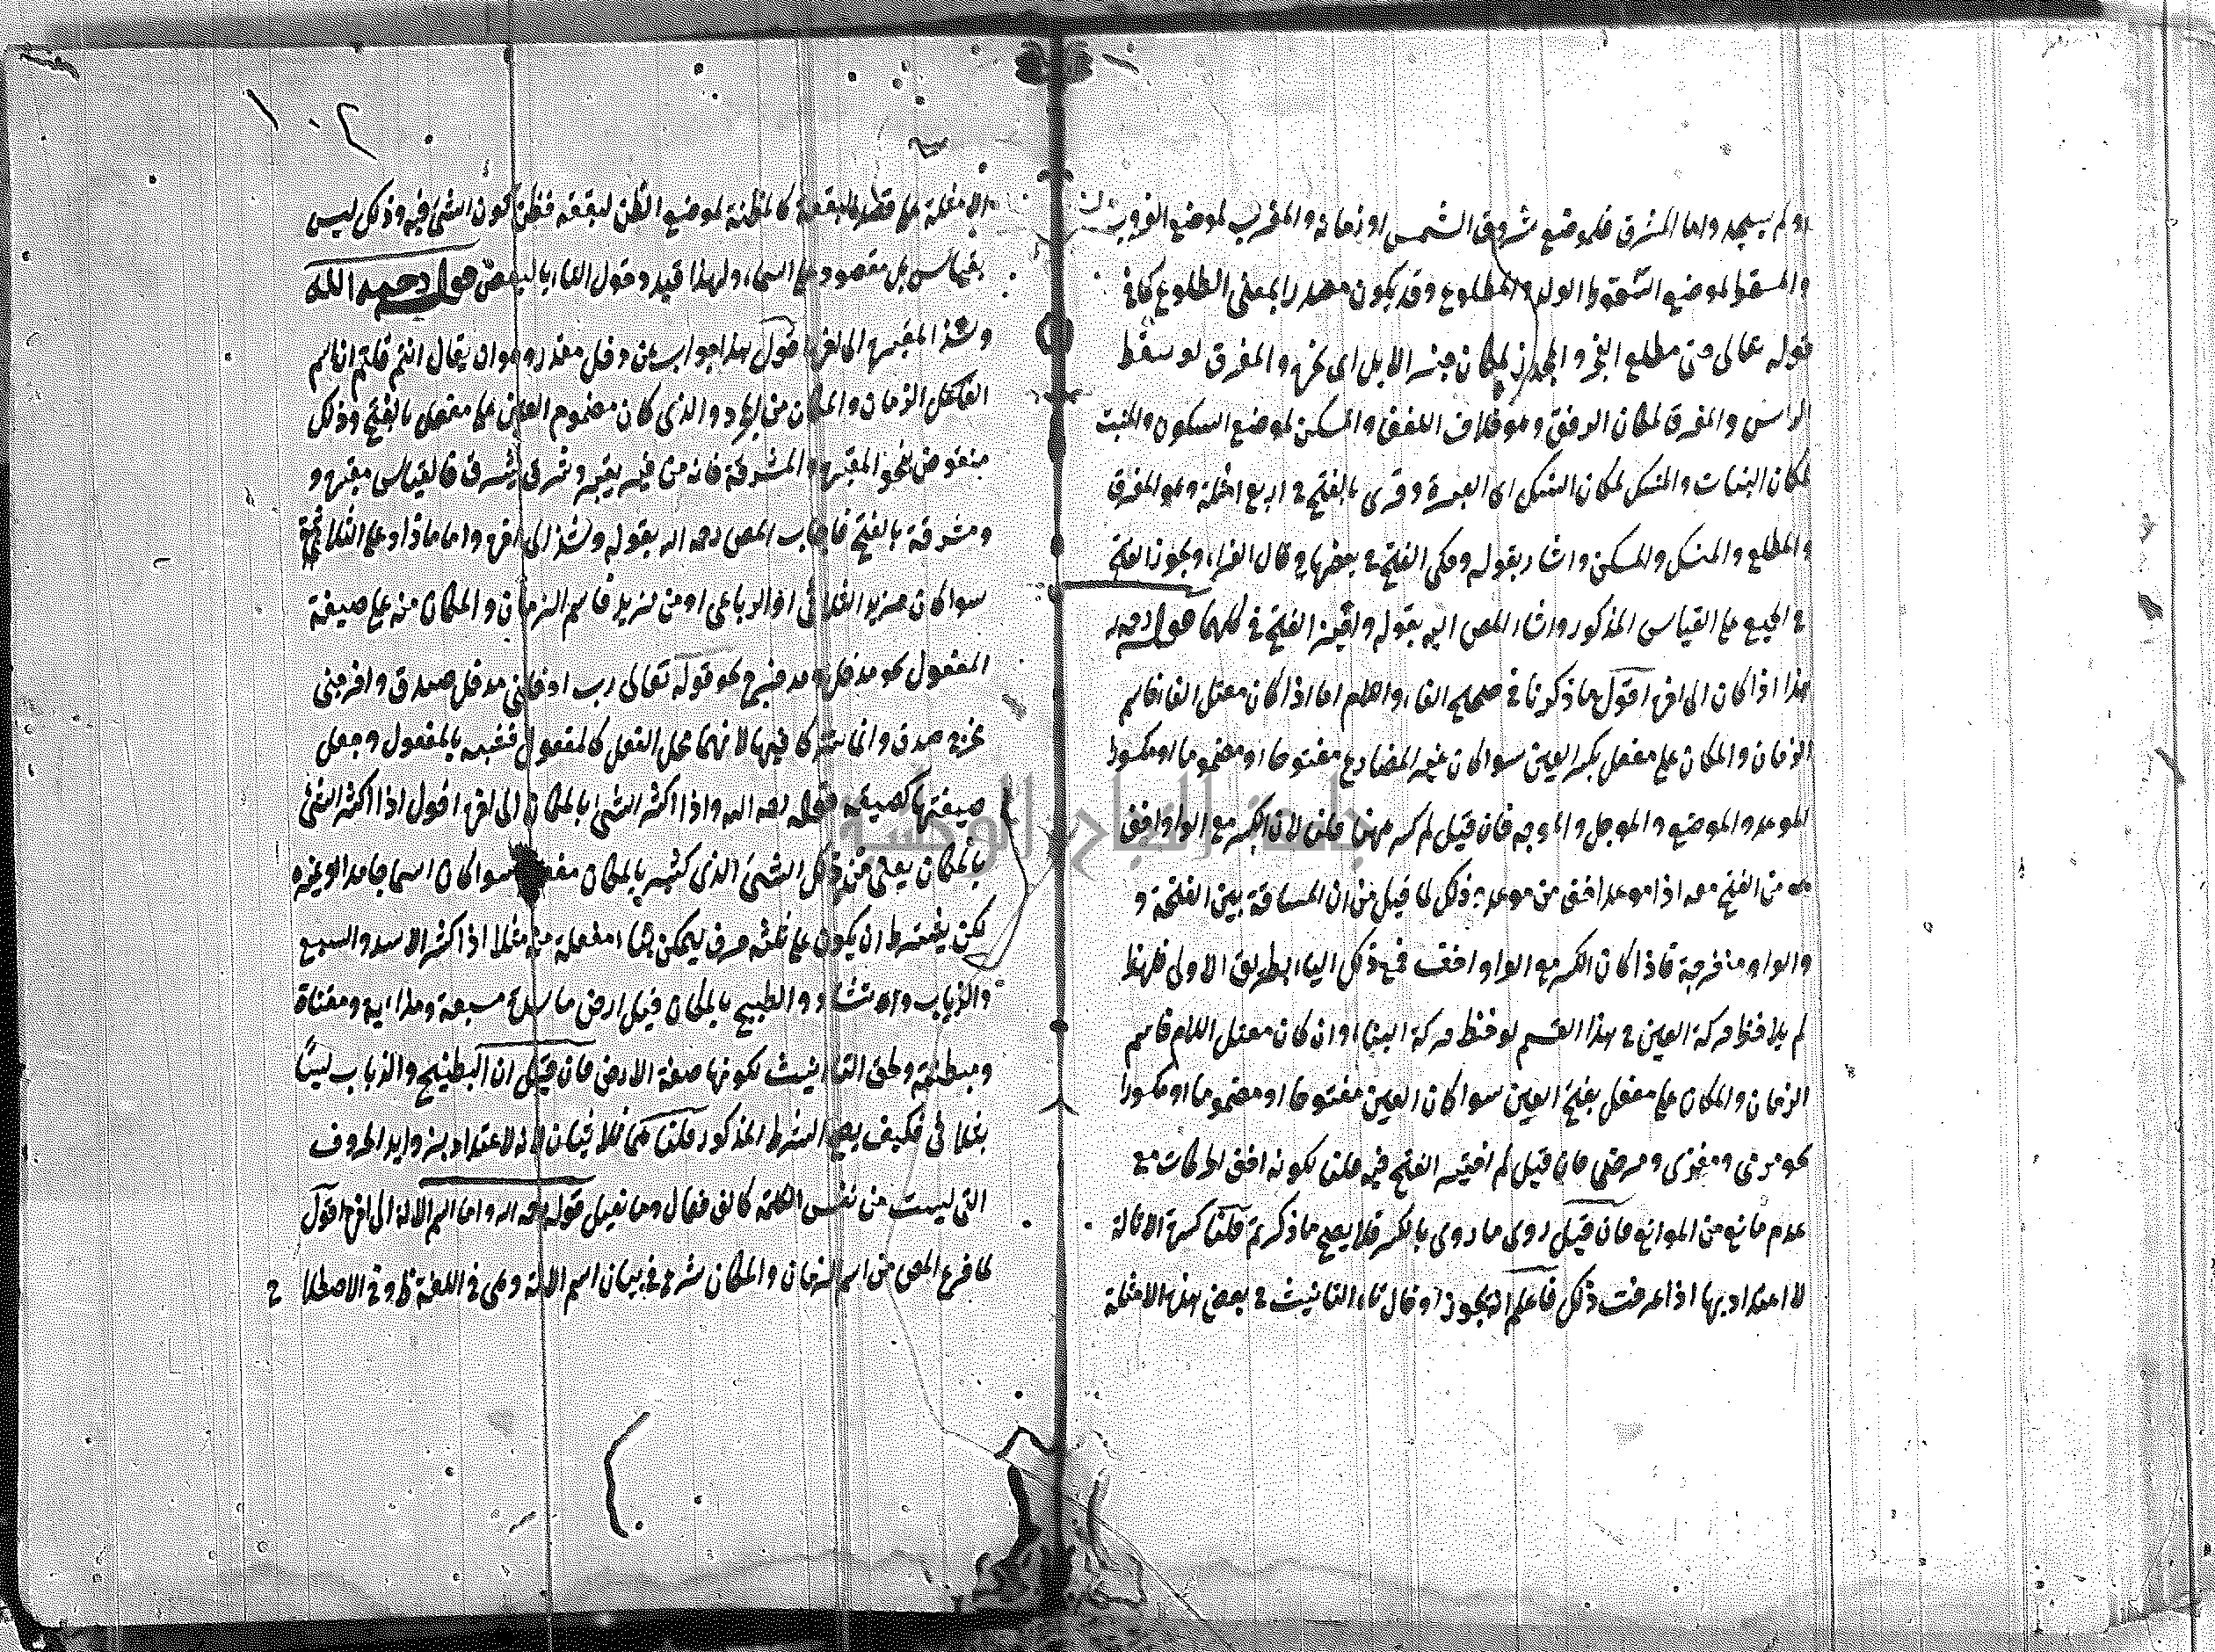 او لم يسجد واما المشرق فلموضع شروق الشمس او زمانه والمغرب لموضع الغروب
والمسقط لموضع السقوط الولد والمطلوع وقد يكون مصدرا بمعنى الطلوع كما في
قوله تعالى حتى مطلع الفجر والمجزر لمكان جزر الابل اى نحره والمفرق لوسط
الراس والمفرق لمكان الرفق وهو خلاف اللفق والمسكن لموضع السكون والمنبت
لمكان النبات والمنسك لمكان النسك اى العبادة وقرى بالفتح في اربع امثلة وهو المفرق
والمطلع والمنسك والمسكن واشار بقوله وحكى الفتح في بعضها وقال الفراء ويجوز الفتح
في الجميع على القياس المذكور واشار المص اليه بقوله واجيز الفتح في كلها قوله رحمه الله
هذا اذا كان الى اخره اقول ما ذكرنا في صحيح الفاء واللام اما اذا كان معتل الفا فاسم
الزمان والمكان على مفعل بكسر العين سوا كان عين المضارع مفتوحا او مضموما او مكسورا
كالموعد والموضع والموجل والموجه فان قيل لم كسر ههنا قلنا لان الكسر مع الواو اخف
من الفتح معه اذا موعد اخف من موعد وذلك لما قيل من ان المسافة بين الفتحة و
والواو منفرجة فاذا كان الكسر مع الواو اخف فمع ذلك الياء بطريق الاولى فلهذا
لم يلاحظ حركة العين في هذا القسم لوحظ حركة البناء وان كان معتل اللام فاسم
الزمان والمكان على مفعل بفتح العين سوا كان العين مفتوحا او مضموما او مكسورا
نحو مرمى ومغزى ومرضى فان قيل لم اختير الفتح فيه قلنا لكونه اخف الحركات مع
عدم مانع من الموانع فان قيل روى ماروى بالكسر فلا يصح ما ذكرتم قلنا كسرة الامالة
لا اعتداد بها اذا عرفت ذلك فاعلم انه يجوز ادخال تاء التانيث في بعض هذه الامثلة
الامثلة على قصد البقعة كالمظنة لموضع الظن لبقعة فظن كون الشئ فيه وذلك ليس
بقياس بل مقصود على السماء ولهذا قيد دخول التاء بالبعض قوله رحمه الله
وشذ المقبرة الى اخره اقول هذا جواب عن دخل مقدر وهو ان يقال انتم قلتم ان اسم
الزمان والمكان من المجرد والذى كان مضموم العين على مفعل بالفتح وذلك
منقوض بنحو المقبرة والمشرقة فانه من قبر يقبر وشرق يشرق فالقياس مقبرة و
ومشرقة بالفتح فاجاب المص رحمه الله بقوله وشذ الى اخره واما ما زاد على الثلاثة
سوا كان مزيد الثلاثى او الرباعى او من مزيد فاسم الزمان والمكان منه على صيغة
المفعول نحو مدخل ومخرج نحو قوله تعالى رب ادخلنى مدخل صدق واخرجنى
مخرج صدق وانما شركا فيها لانهما محل الفعل كالمفعول فشبه بالمفعول وجعل
صيغتها كصيغته قوله رحمه الله واذا اكثر الشئ بالمكان الى اخره اقول اذا اكثر الشئ
بالمكان يعنى من ذلك الشئ الذى كثير بالمكان مفعلة سوا كان اسما جامدا او غيره
لكن يشترط ان يكون على ثلثة حرف ليمكن بناء مفعلة منه مثلا اذا كثر الاسد والسبع
والذياب والقثاء والطبيخ بالمكان قيل ارض ماسدة مسبعة ومذابة ومقثاة
ومبطخة ولحق التانيث لكونها صفة الارض فان قيل ان البطيخ والذباب ليسا
بثلاثى فكيف يصح الشرط المذكور قلنا هما ثلاثيان لانه لا اعتداد بزوايد الحروف
التى ليست من نفس الكلمة كالف فعال وما نعيل قوله رحمه الله واما اسم الالة الى اخره اقول
لما فرغ المص من اسم الزمان والمكان شرع في بيان اسم الالة وهى في اللغة ظ وفى الاصطلاح
جامعة النجاح الوطنية